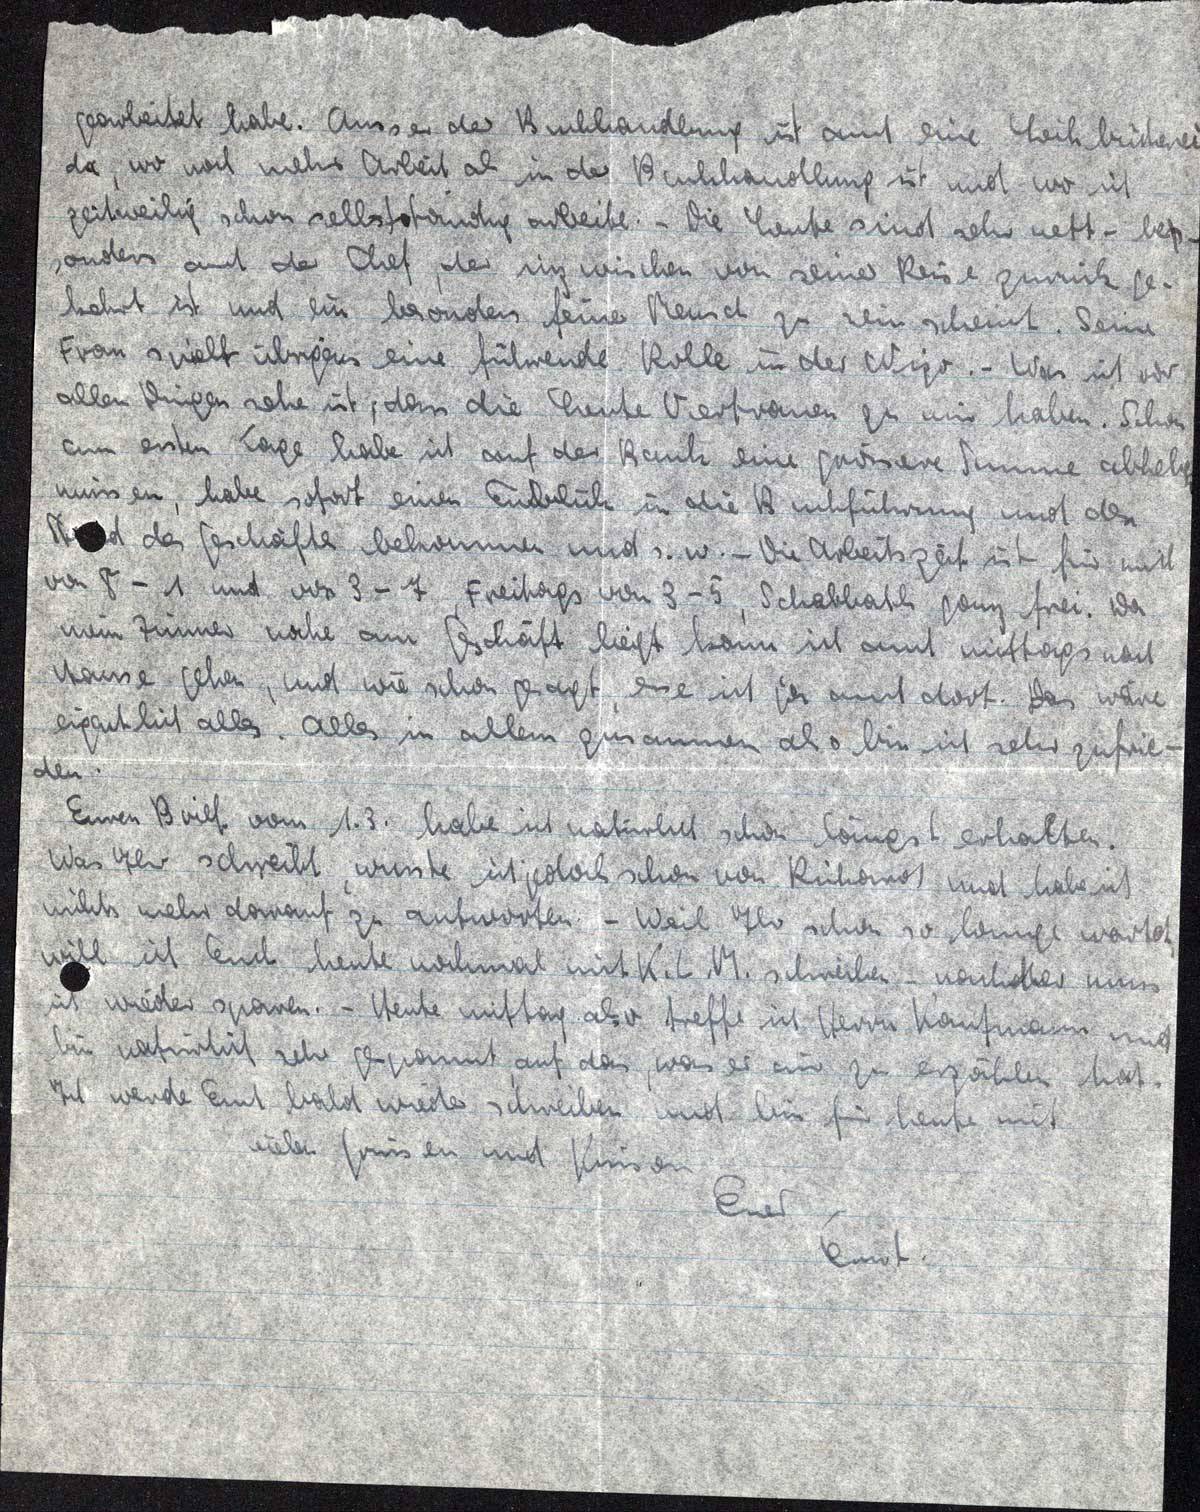 gearbeitet habe. Ausser der Buchhandlung ist auch eine Leihbücherei
da, wo noch mehr Arbeit als in der Buchhandlung ist und wo ich
zeitweilig schon selbstständig arbeite. - Die Leute sind sehr nett - bes-
onders auch der Chef, der inzwischen von seiner Reise zurück ge-
kehrt ist und ein besonders feiner Mensch zu sein scheint. Seine
Frau spielt übrigens eine führende Rolle in der Wizo. - Was ich vor
allen Dingen sehe ist, dass die Leute Vertrauen zu mir haben. Schon
am ersten Tage habe ich auf der Bank eine grössere Summe abheben
müssen, habe sofort einen Einblick in die Buchführung und den
Stand des Geschäftes bekommen und s. w. - Die Arbeitszeit ist für mich
von 8 - 1 und von 3 - 7, Freitags von 3 - 5, Schabbath ganz frei. Da
mein Zimmer nahe am Geschäft liegt kann ich auch mittags nach
Hause gehen, und wie schon gesagt, esse ich ja auch dort. Das wäre
eigentlich alles. Alles in allem zusammen also bin ich sehr zufrie-
den.
Euren Brief vom 1.3. habe ich natürlich schon längst erhalten.
Was Ihr schreibt, wusste ich jedoch schon von Richard und habe ich
nichts mehr darauf zu antworten. - Weil Ihr schon so lange wartet,
will ich Euch heute nochmal mit K.L.M. schreiben - nachher muss
ich wieder sparen. - Heute mittag also treffe ich Herrn Kaufmann und
bin natürlich sehr gespannt auf das, was er mir zu erzählen hat.
Ich werde Euch bald wieder schreiben und bin für heute mit
vielen Grüssen und Küssen
Euer